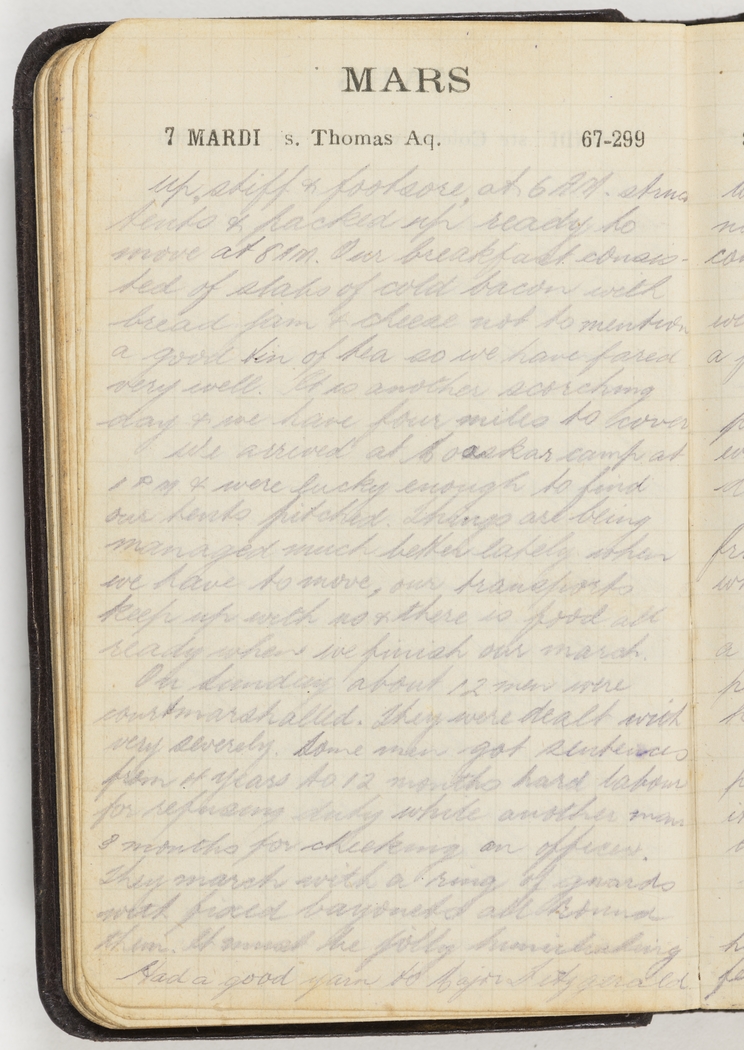 MARS
7 MARDI s. Thomas Aq. 67-299
up stiff & footsore at 6 struck
tents & packed up ready to
move at 8 AM. Our breakfast consis-
ted of slabs of cold bacon with
bread jam & cheese not to mention
a good tin of tea so we have fared
very well. It is another scorching
day & we have four miles to cover
We arrived at camp at
1 PM & were lucky enough to find
our tents pitched. Things are being
managed much better lately when
we have to move, our transports
keep up with us & there is food all
ready when we finish our march.
On Sunday about 12 men were
courtmarshalled. They were dealt with
very severely. Some men got sentences
from years to 12 months hard labour
for refusing duty while another man
8 months for cheeking an officer.
They march with a ring of guards
with fixed bayonets all round
them. It must be jolly
Had a good yarn to Major Fitzgerald